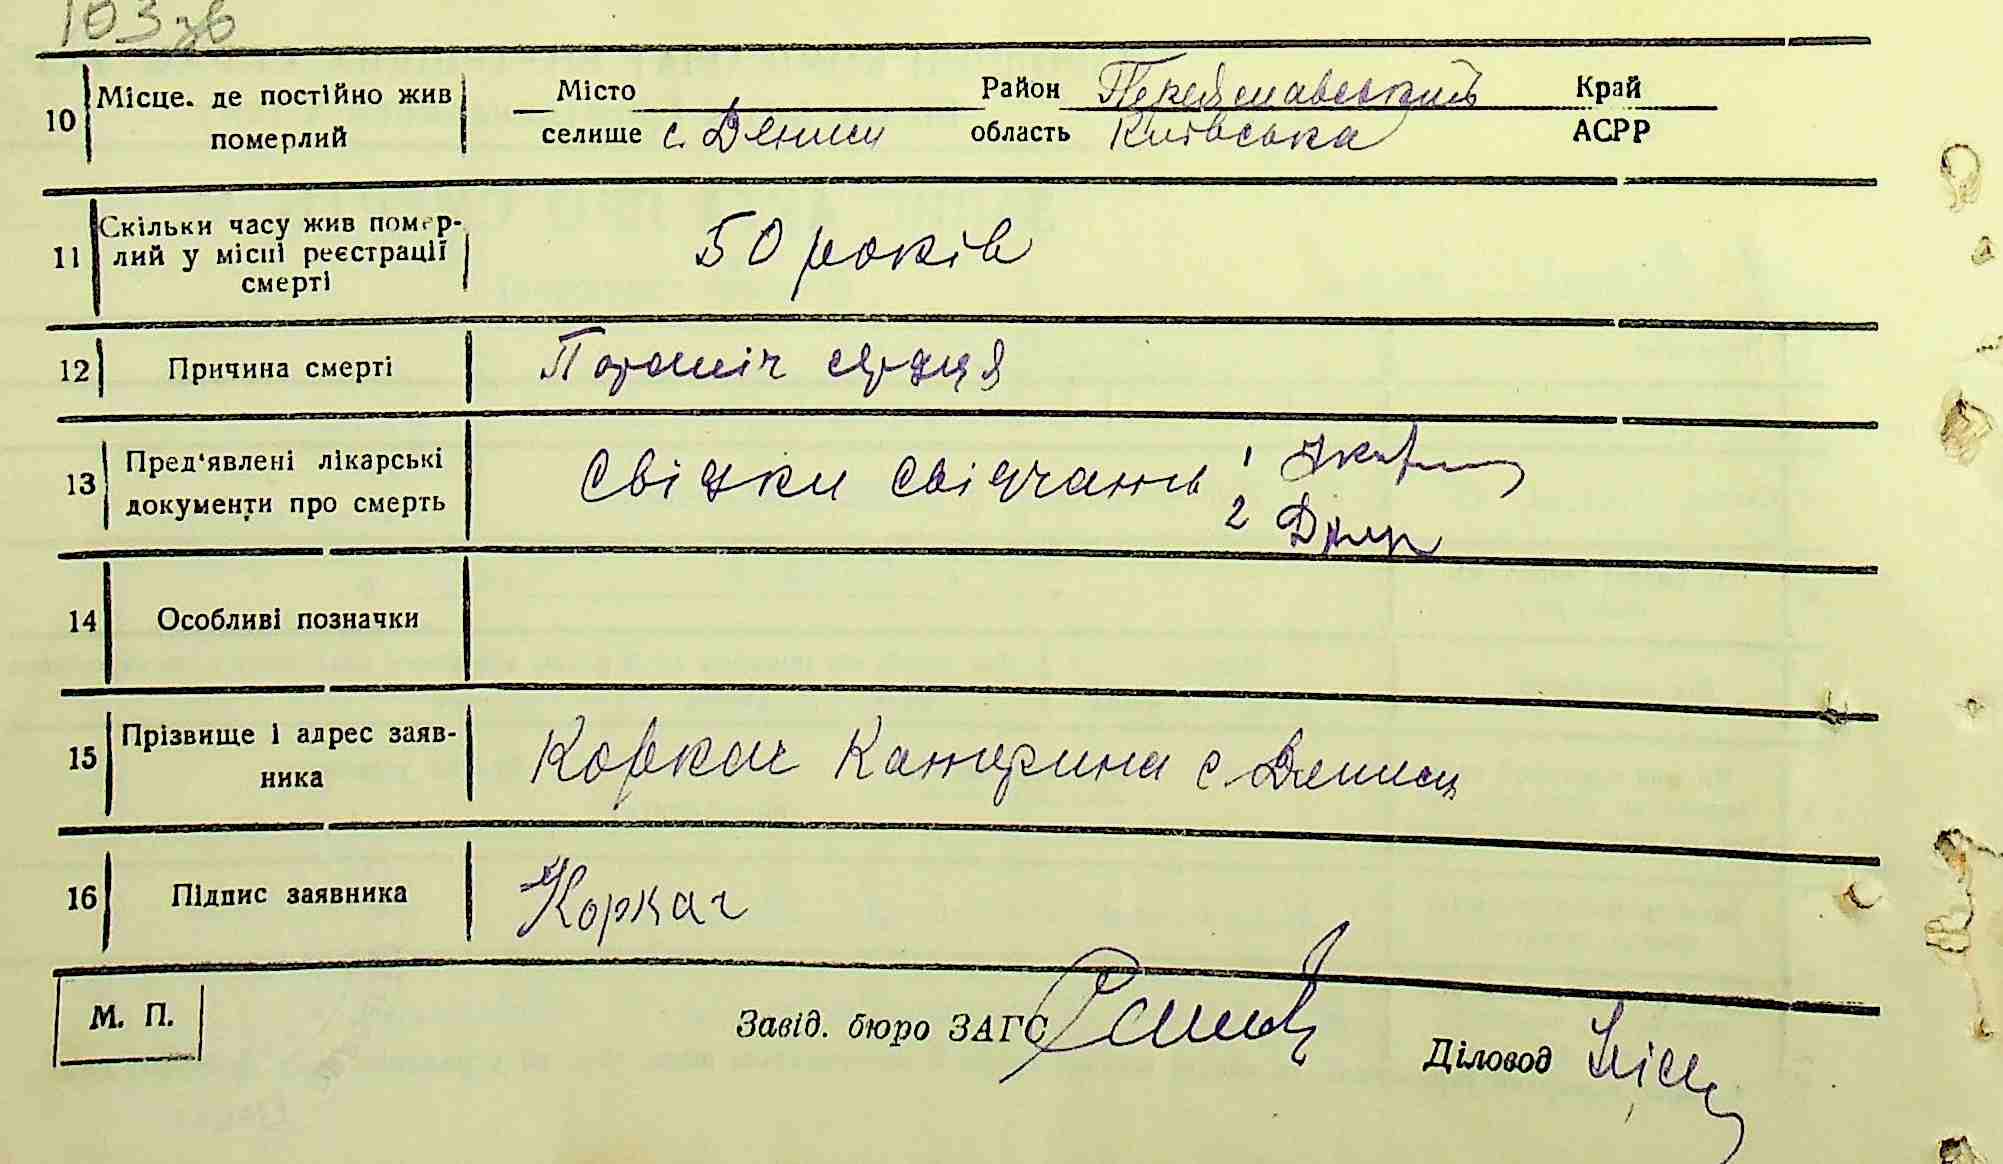 103 зв
10 Місце. де постійно жив Місто Район Переяславський Край
померлий селище с. Дениси область Київська АСРР
Скільки часу жив помер-
11 лий у місці реєстрації 50 років
смерті
12 Причина смерті Параліч серця
13 Пред'явлені лікарські Свідки свідчать 1
документи про смерть 2
14 Особливі позначки
15 Прізвище і адрес заяв- Коркач Катерина с. Дениси
ника
16 Підпис заявника Коркач
М. П. Завід. бюро ЗАГС Діловод